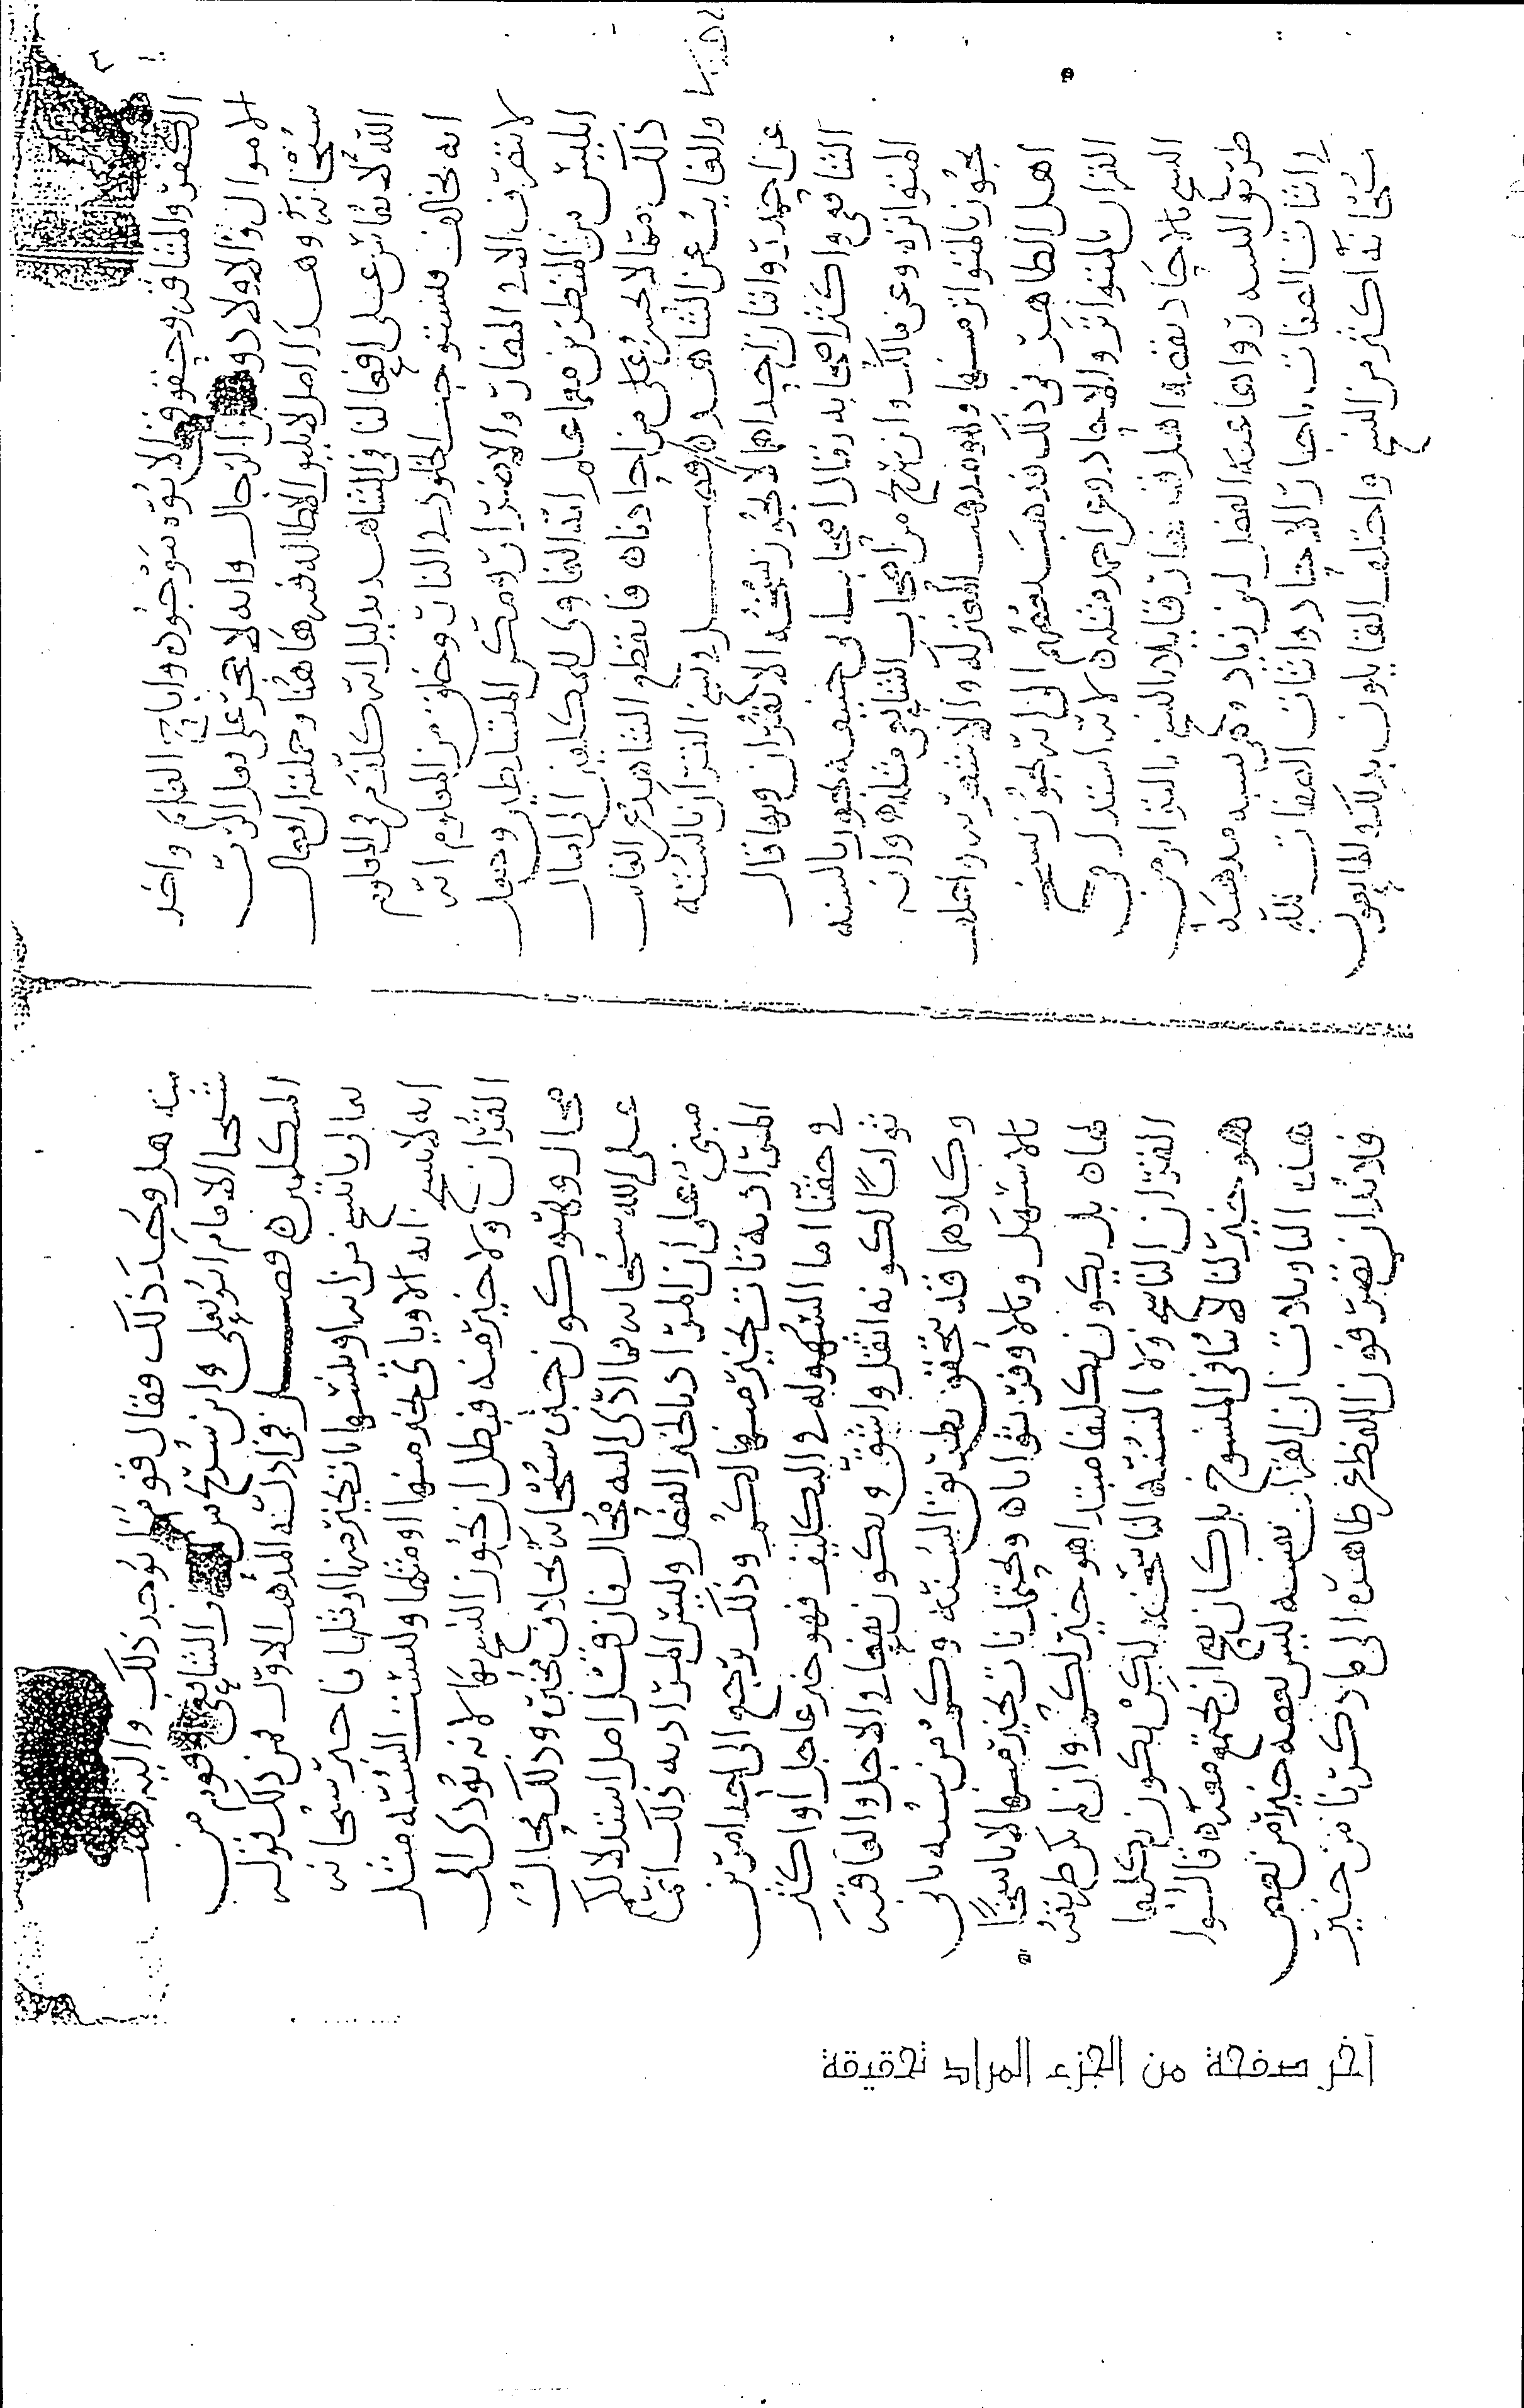 الكفر والمشاقه وحقوق لا بوه سوجود واباح الغنايم واخذ
الاموال والاولاد دون الرجال وانه لا يجزعلى بها الرب
سبحانه وهذا اصل لا يليق الاطاله فيه هاهنا وجملته ان افعال
الله لا تقاس على افعالنا في الشاهد بدليل انه كلف من المعلوم
انه يخالف فيستوجب الخلود في النار وخلق من المعلوم انه
لا تنفرف الا في المضار والاضرار ومكن الشياطين وجعل
ابليس من المنظرين مع ما علم انه الغاوى للمكلفين الى امثال
ذلك مما لا يحسن على من احادناه فانقطع الشاهد عن الغايب
والغايب عن الشاهد ه فصل في نسخ القران بالسنه
عن احمد روايتان احداهما لا يجوز نسخه الا بقران وبها قال
الشافعي واكثر اصحابه وقال اصحاب ابي حنيفه يجوز بالسنه
المتواتره وعن مالك وابن سريج من اصحاب الشافعي مثله وانه
يجوز بالمتواتر منها وهو مذهب المعتزله والاشعريه واختلف
اهل الظاهر في ذلك فذهب بعضهم الى انه يجوز نسخ
القران بالمتواتر والاحاد وعن احمد مثله لانه استدل في
النسخ بالاحاد بقصه اهل قبا فصار قايلا بالنسخ بالتواتر من
طريق التنبيه رواها عنه الفضل بن زياد وهي نسبه مذهبه
في اثبات الصفات باخبار الاحاد واثبات الصفات لله
سبحانه اكثر من النسخ واختلف القايلون بذلك والمانعون
منه هل وجد ذلك فقال قوم لم يوجد ذلك واليه ذهب
شيخنا الامام ابو يعلى وابن سريج من اصحاب الشافعي وقوم من
المتكلمين ه فصل في ادلتنا للمذهب الاول فمن ذلك قوله
تعالى ما ننسخ من ايه او ننسها نات بخير منها او مثلها فاخبر سبحانه
انه لا ينسخ ايه الا وياتي بخير منها او مثلها وليست السنه مثل
القران ولا خير منه فبطل ان يجوز النسخ بها لانه يودي الى
محال وهو كون خبره سبحانه بخلاف مخبره وذلك محال
على الله سبحانه فما ادى اليه محال فان قيل اصل استدلالكم
مبني على ان المراد بالخير الفضل وليس المراد به ذلك انما
المراد به نات بخير منها لكم وذلك يرجع الى احد امرين
في حقنا اما السهوله في التكليف فهو خير عاجل او اكثر
ثوابا لكونه اثقل واشق ويكون نفعا في الاجل والعاقبه
وكلاهما قد يتحقق بطريق السنه وكم من سنه تاتي
بالاسهل وبالاوفر ثوابا ه ويحتمل نات بخير منها لا ناسخا
لها ه بل يكون تكليفا مبتدا هو خير لكم وان لم يكن طريقه
القران الناسخ ولا السنه الناسخه لكن يكون تكليفا
هو خير لنا لا ينافي المنسوخ بل كان يصح ان يجتمع معه ه قالوا
هذه التاويلات ان القران نفسه ليس بعضه خيرا من بعض
فلا بد ان نصرفوا اللفظ عن ظاهره الى ما ذكرنا من خير
آخر صفحة من الجزء المراد تحقيقة